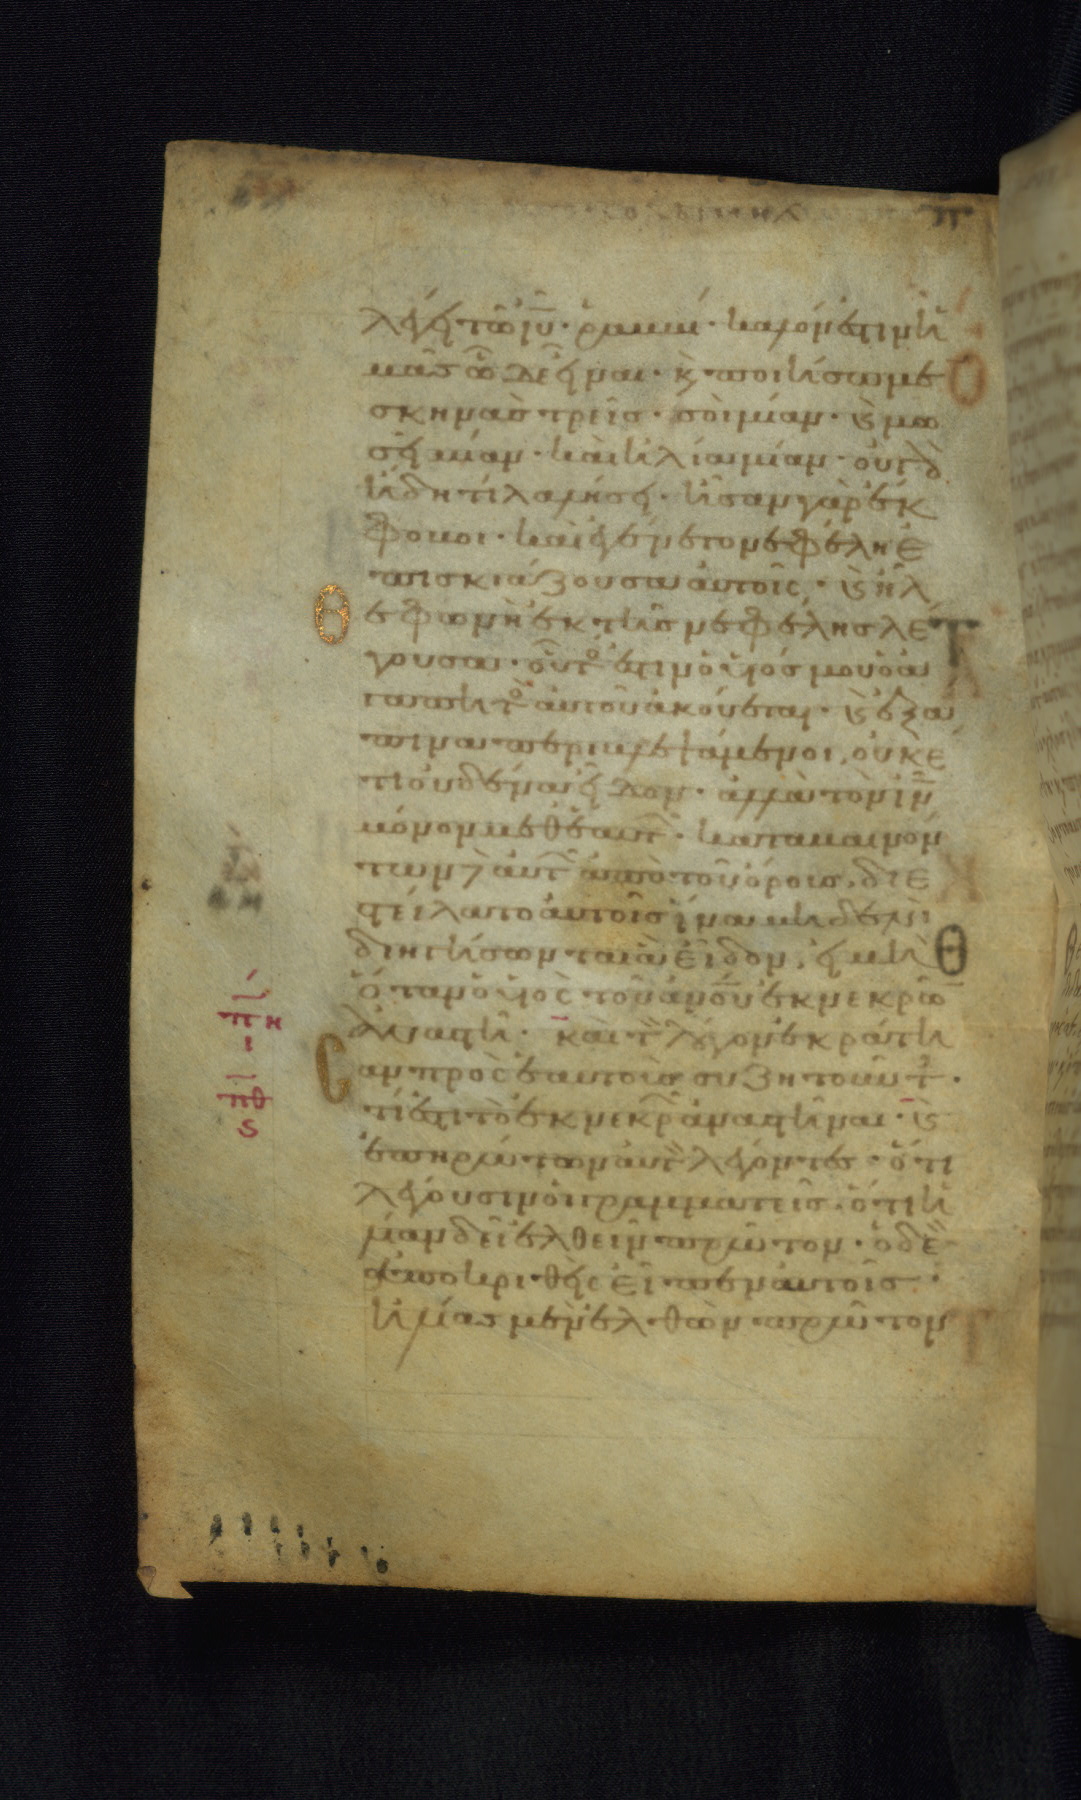 λέγει τῶ ἰῦ· ραββί· καλόν ἐστιν ἡ
μᾶς ὧδε εἶναι· κ̀ ποιήσωμε
σκηνὰς τρεῖς· σοὶ μίαν· κ̀ μω
σεῖ μίαν· καὶ ἠλία μίαν· οὐ γὰρ
ἤδη τί λαλήσει· ἦσαν γὰρ ἔκ
φοβοι· καὶ ἐγένετο νεφέλη ἐ
πισκιάζουσα αὐτοῖς· κ̀ ἦλ
θε φωνὴ ἐκ τῆς νεφέλης λέ
γουσα· οὗτο ἐστιν ὁ υἱός μου ὁ ἀ
γαπητὸ αὐτοῦ ἀκούεται· κ̀ ἐξά
πινα περιβλεψάμενοι, οὐκ ἔ
τι οὐδένα εἶδον· ἀλλὰ τὸν ἰν̄
μόνον μεθ' ἑαυτ· καταβαινόν
των δ αὐτ ἀπὸ τοῦ ὄρους. διε
στείλατο αὐτοῖς ἵνα μηδενὶ
διηγήσωνται ἃ εἶδον, εἰ μὴ
ὅταν ὁ υἱὸς τοῦ ἀνο̄υ ἐκ νεκρῶ
ἀναστῆ· καὶ τ λόγον ἐκράτη
σαν πρὸς ἑαυτοὺς συζητοῦντ·
τί ἐστι τὸ ἐκ νεκρ ἀναστῆναι· κ̀
ἐπηρώτων αὐτ λέγοντες· ὅτι
λέγουσιν οἱ γραμματεῖς ὅτι ἠ
λίαν δεῖ ἐλθεῖν πρῶτον· ὁ δὲ
ἀποκριθεὶς εἶπεν αὐτοῖς·
ἠλίας μὲν ἐλθὼν πρῶτον